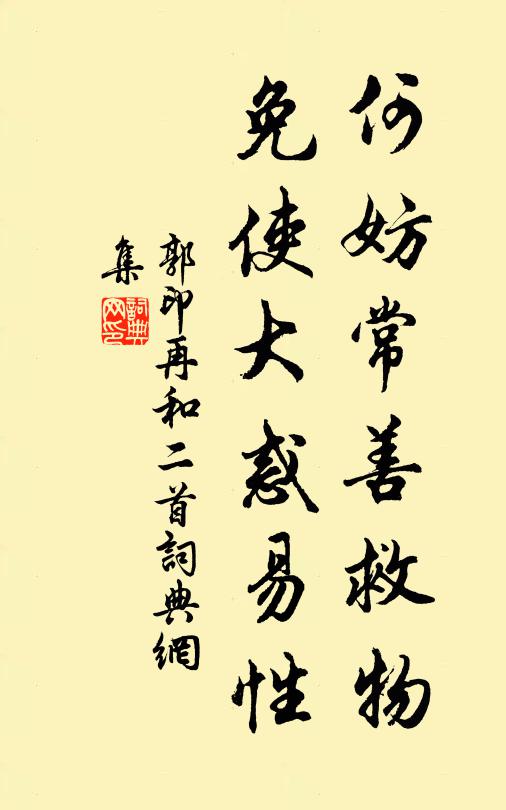 何妨常善救物
免使大惑易性
郭印再和二首詞典網
集
詞典
网印